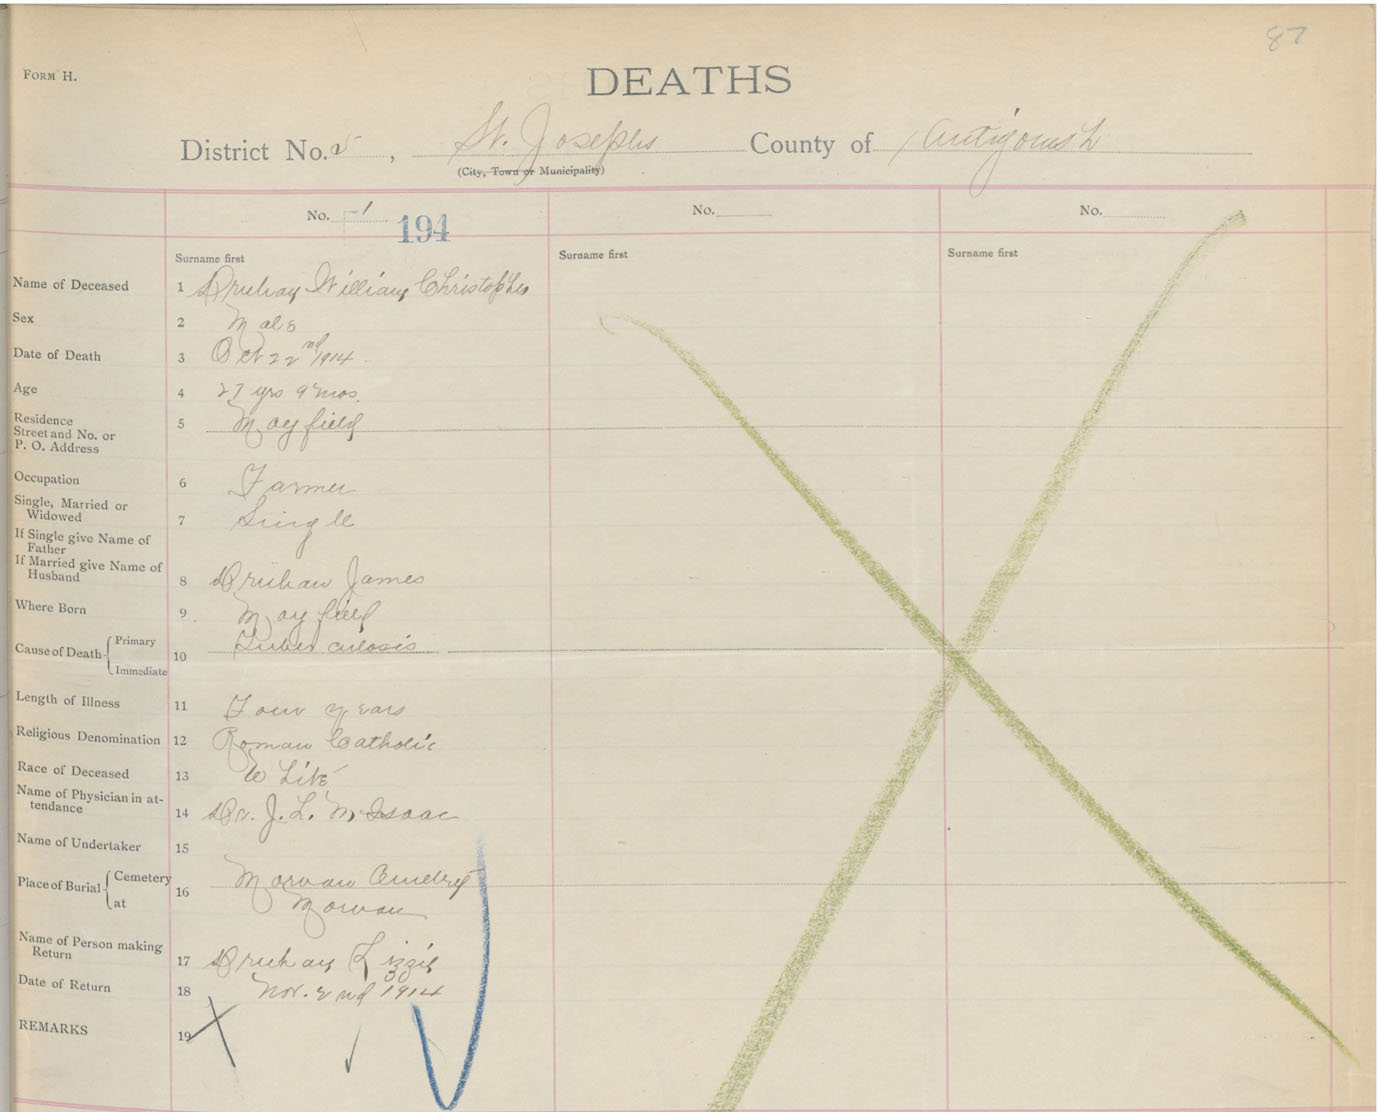 87
FORM H.
DEATHS
District No. 5, St. Josephs County of Antigonish
(City, Town or Municipality)
No. 1 194
No.
No.
Surname first
Surname first
Surname first
Name of Deceased 1 Druhan William Christopher
Sex 2 Male
Date of Death 3 Oct 22nd 1914
Age 4 27 yrs 9 mos.
Residence
Street and No. or 5 Mayfield
P. O. Address
Occupation 6 Farmer
Single, Married or
Widowed 7 Single
If Single give Name of
Father
If Married give Name of
Husband 8 Druhan James
Where Born 9 Mayfield
Cause of Death Primary
10 Tuberculosis
Immediate
Length of Illness 11 Four years
Religious Denomination 12 Roman Catholic
Race of Deceased 13 White
Name of Physician in at-
tendance 14 Dr. J. L. McIsaac
Name of Undertaker 15
Place of Burial Cemetery 16 Morvan Cemetery
at Morvan
Name of Person making
Return 17 Druhan Lizzie
Date of Return 18 Nov. 2nd 1914
REMARKS 19